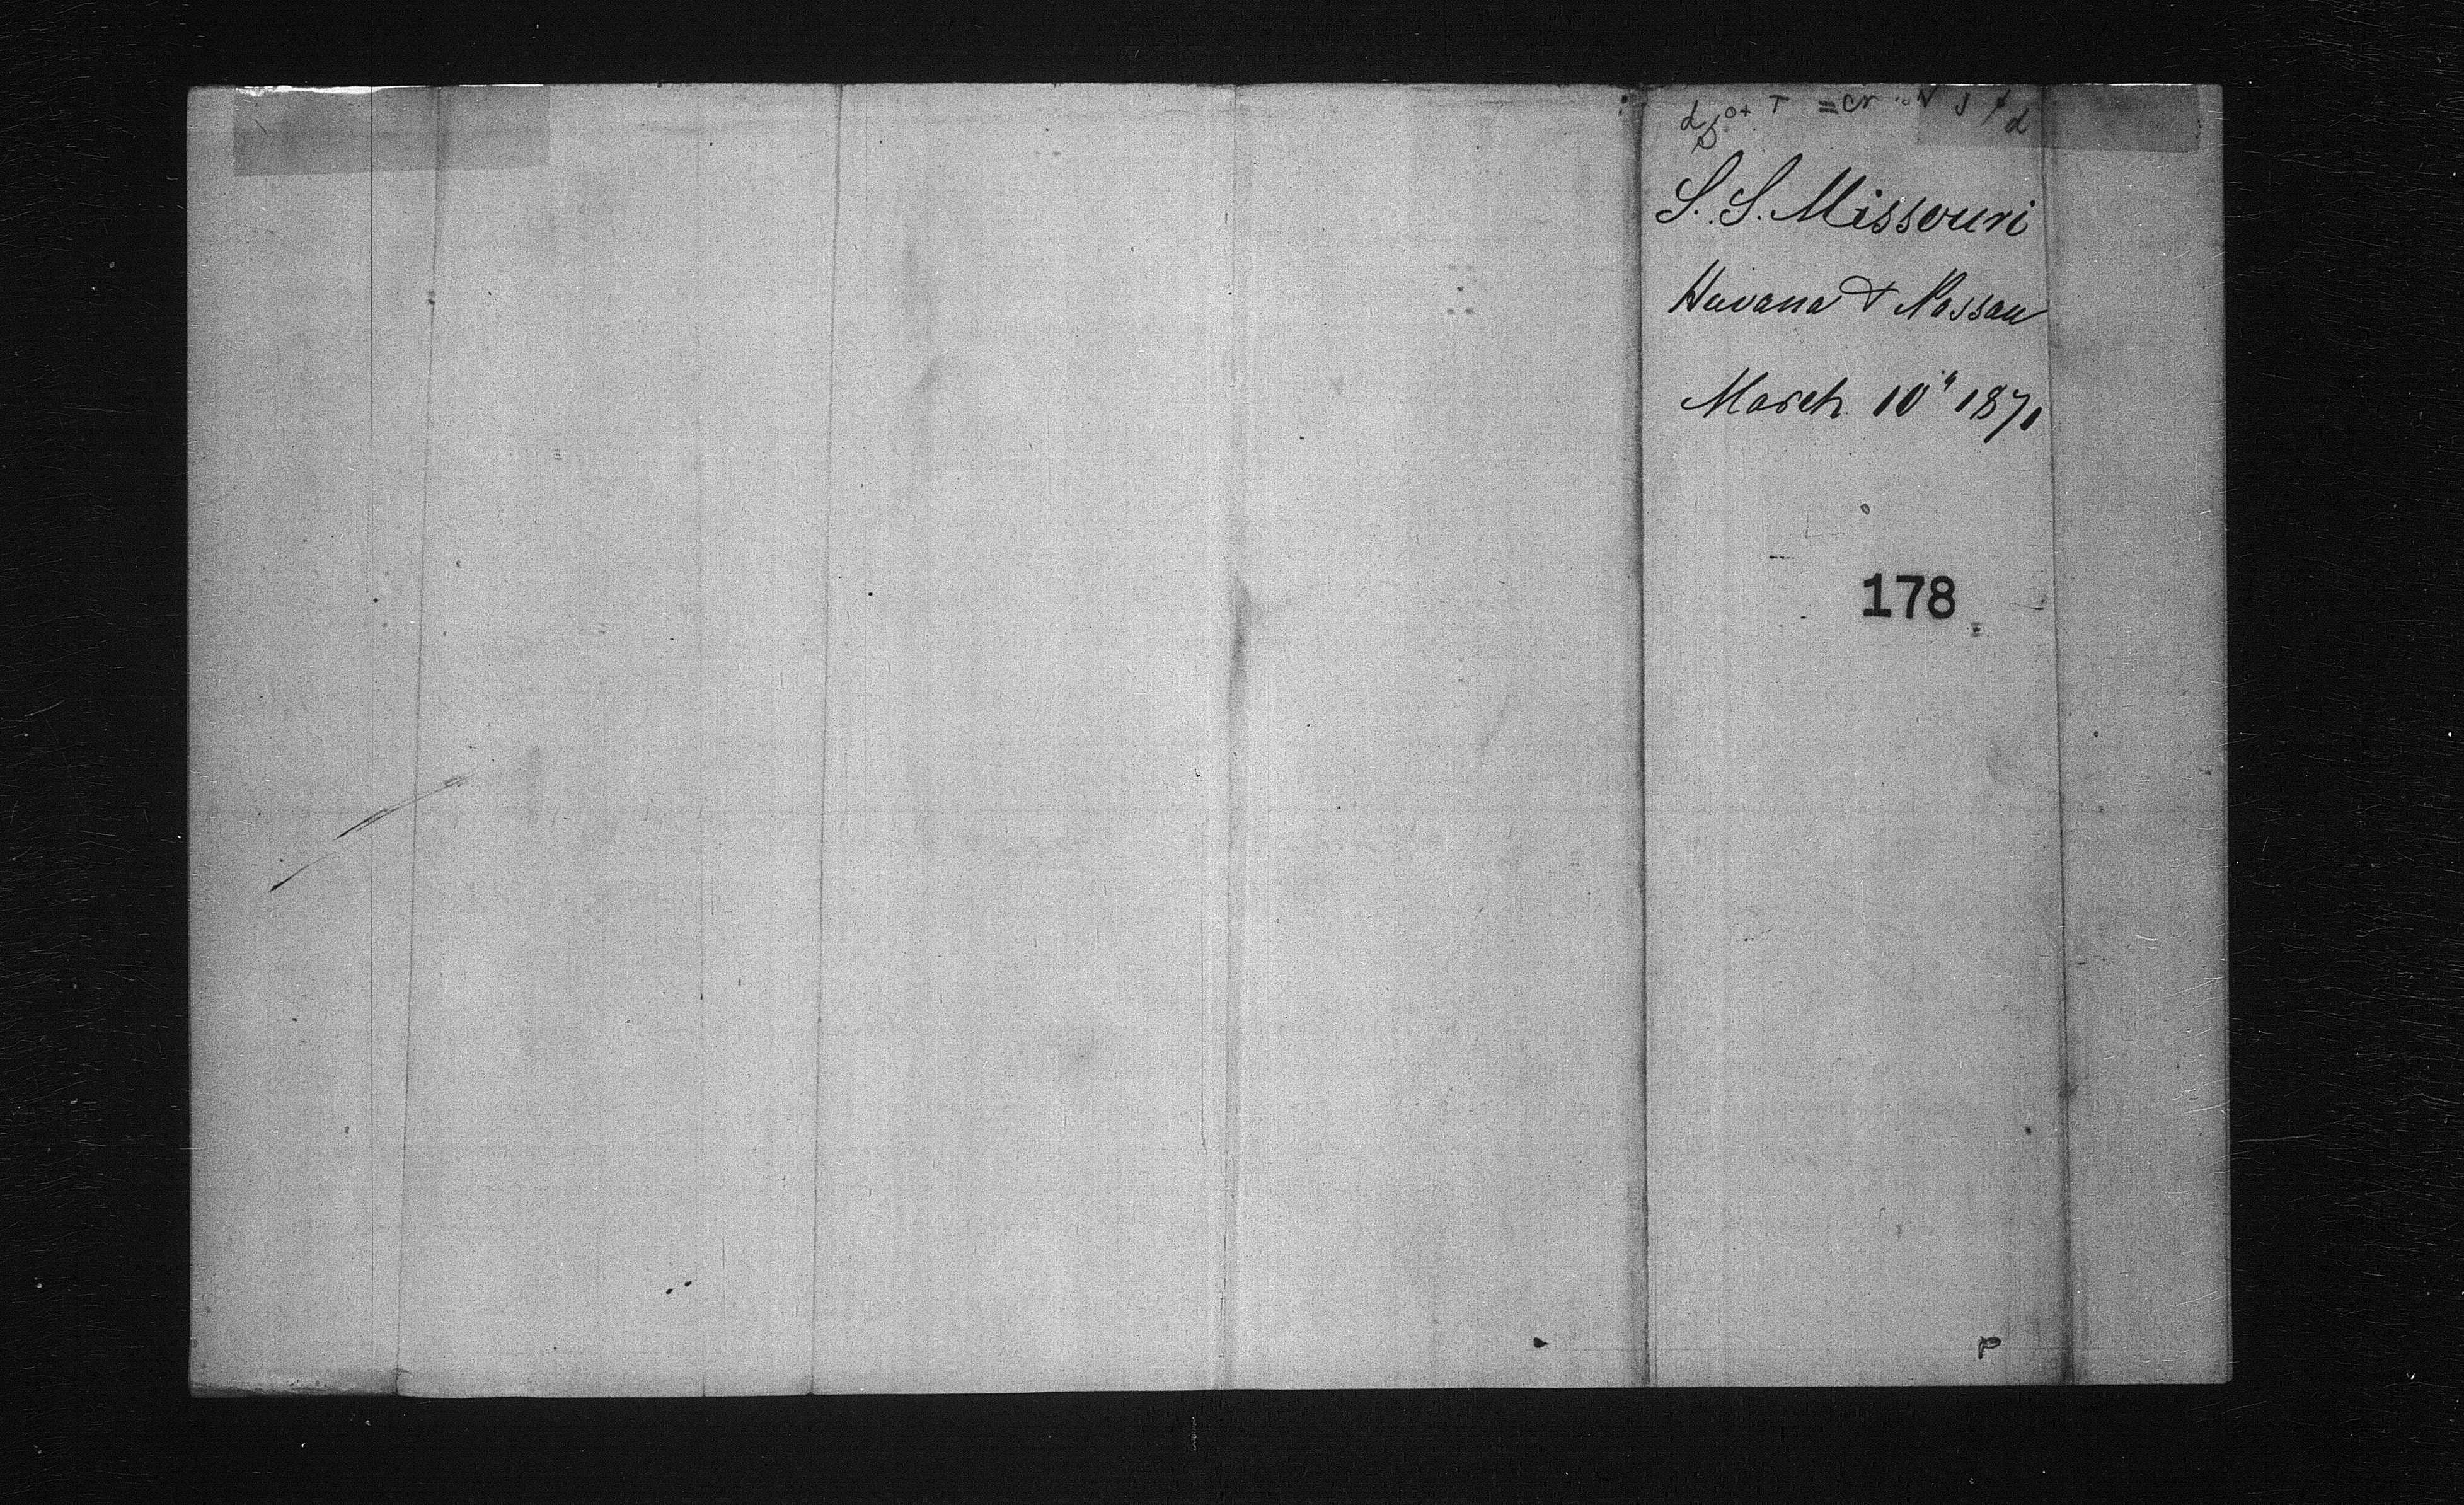 S. S. Missouri
Havana & Nassau
March 10" 1871
178